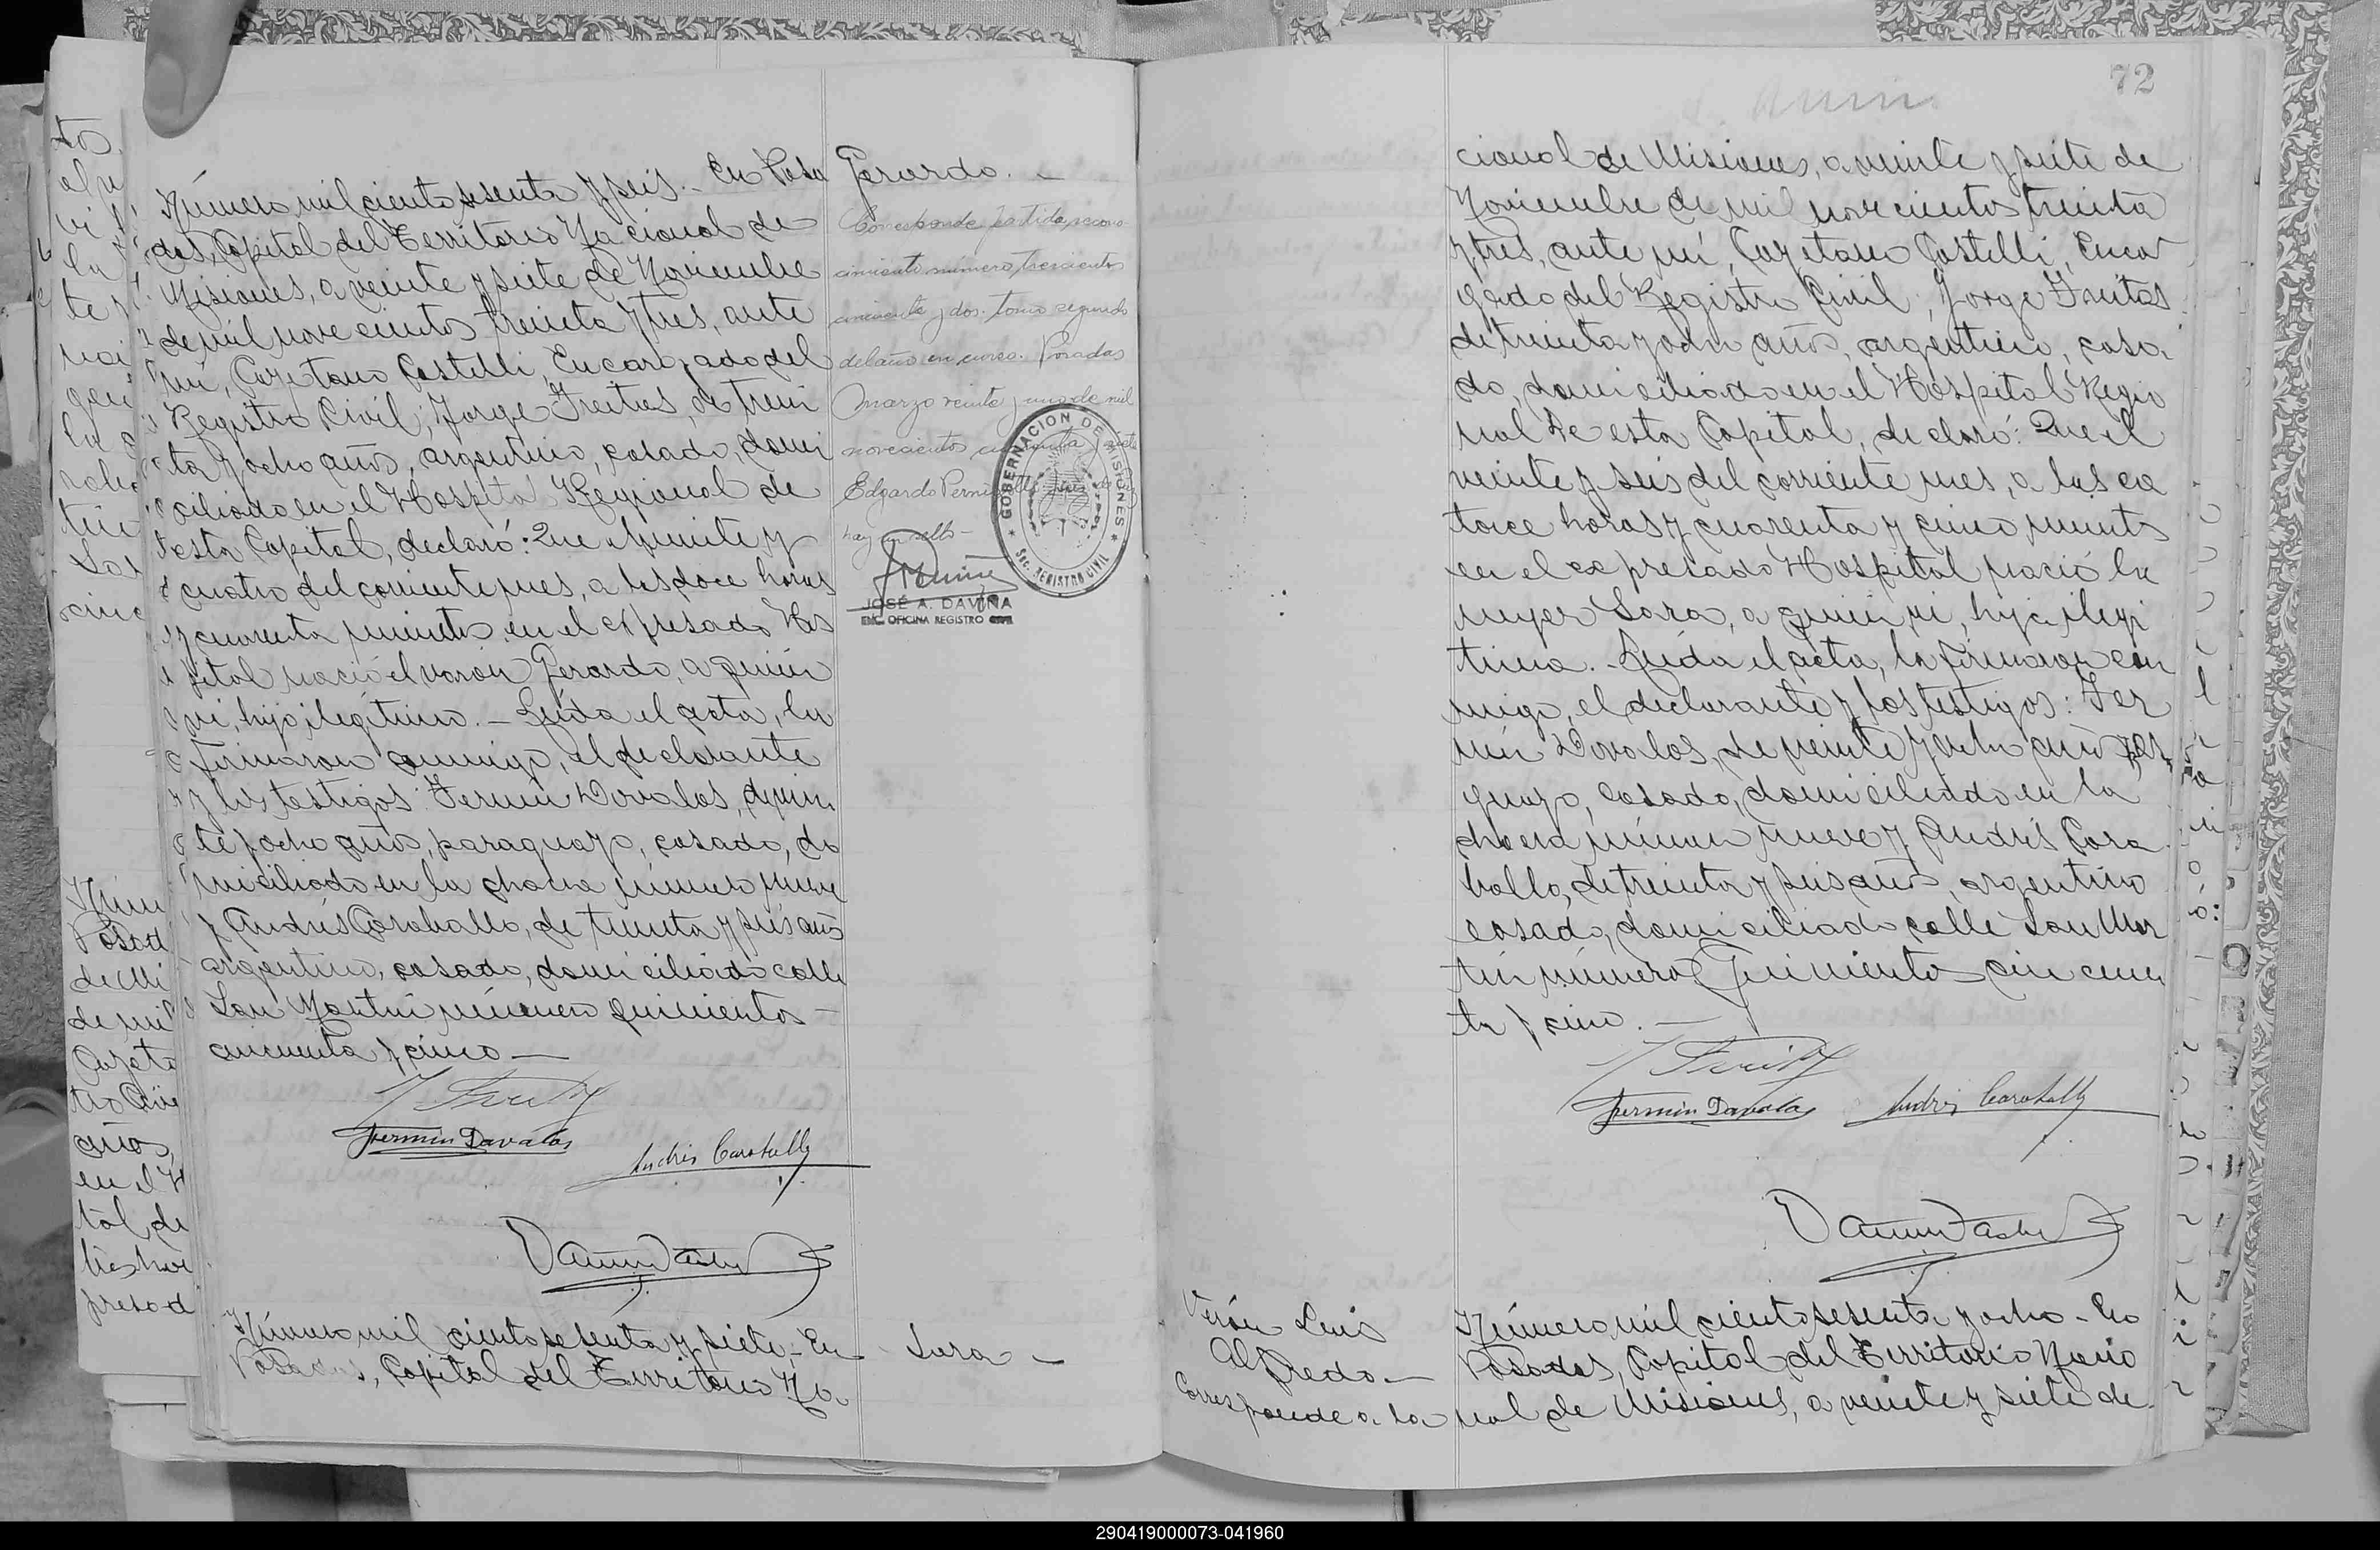 Número mil ciento sesenta y seis.- En Posa
das, Capital del Territorio Nacional de
Misiones, a veinte y siete de Noviembre
de mil novecientos treinta y tres, ante
mí, Cayetano Castelli, Encargado del
Registro Civil; Jorge Freitas, de trein
ta y ocho años, argentino, casado, domi
ciliado en el Hospital Regional de
esta Capital, declaró: Que el veinte y
cuatro del corriente mes, a las doce horas
y cuarenta minutos en el expresado Hos
pital nació el varón Gerardo, a quien
vi, hijo ilegítimo.- Leída el acta, la
firmaron conmigo, el declarante
y los testigos: Fermín Dovalos, de vein
te y ocho años, paraguayo, casado, do
miciliado en la chacra número nueve
y Andrés Caraballo, de treinta y seis años
argentino, casado, domiciliado calle
San Martín número quinientos
cincuenta y cinco —
Fermin Davalos
Andrés Caraballo
Número mil ciento sesenta y siete.- En
Posadas, Capital del Territorio Na
Gerardo. —
Corresponde partida recono-
cimiento número trescientos
cincuenta y dos. tomo segundo
del año en curso. Posadas
Marzo veinte y uno de mil
novecientos
Edgardo
hay un sello -
GOBERNACION DE MISIONES
SEC. REGISTRO CIVIL
JOSÉ A. DAVIÑA
ENC. OFICINA REGISTRO CIVIL
Sara —
72
cional de Misiones, a veinte y siete de
Noviembre de mil novecientos treinta
y tres, ante mí, Cayetano Castelli, Encar
gado del Registro Civil; Jorge Freitas
de treinta y ocho años, argentino, casa
do, domiciliado en el Hospital Regio
nal de esta Capital, declaró: Que el
veinte y seis del corriente mes, a las ca
torce horas y cuarenta y cinco minutos
en el expresado Hospital nació la
mujer Sara, a quien vi, hija ilegí
tima.- Leída el acta, la firmaron con
migo, el declarante y los testigos: Fer
mín Dovalos, de veinte y ocho años, para
guayo, casado, domiciliado en la
chacra número nueve y Andrés Cara
ballo, de treinta y seis años, argentino
casado, domiciliado calle San Mar
tín número Quinientos cincuen
ta y cinco. —
Fermin Davalos
Andrés Caraballo
Verón Luis
Alfredo.—
Corresponde a la
Número mil ciento sesenta y ocho - En
Posadas, Capital del Territorio Nacio
nal de Misiones, a veinte y siete de
290419000073-041960